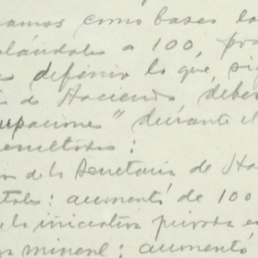 amos como bases la
olándoles a 100, pro
es definir lo que, sig
s de Hacienda, deber
upaciones" durante el
resultados:
n de la Secretaría de Ha
tales: aumentó de 100
e la iniciativa privada e
mineral: aumentó